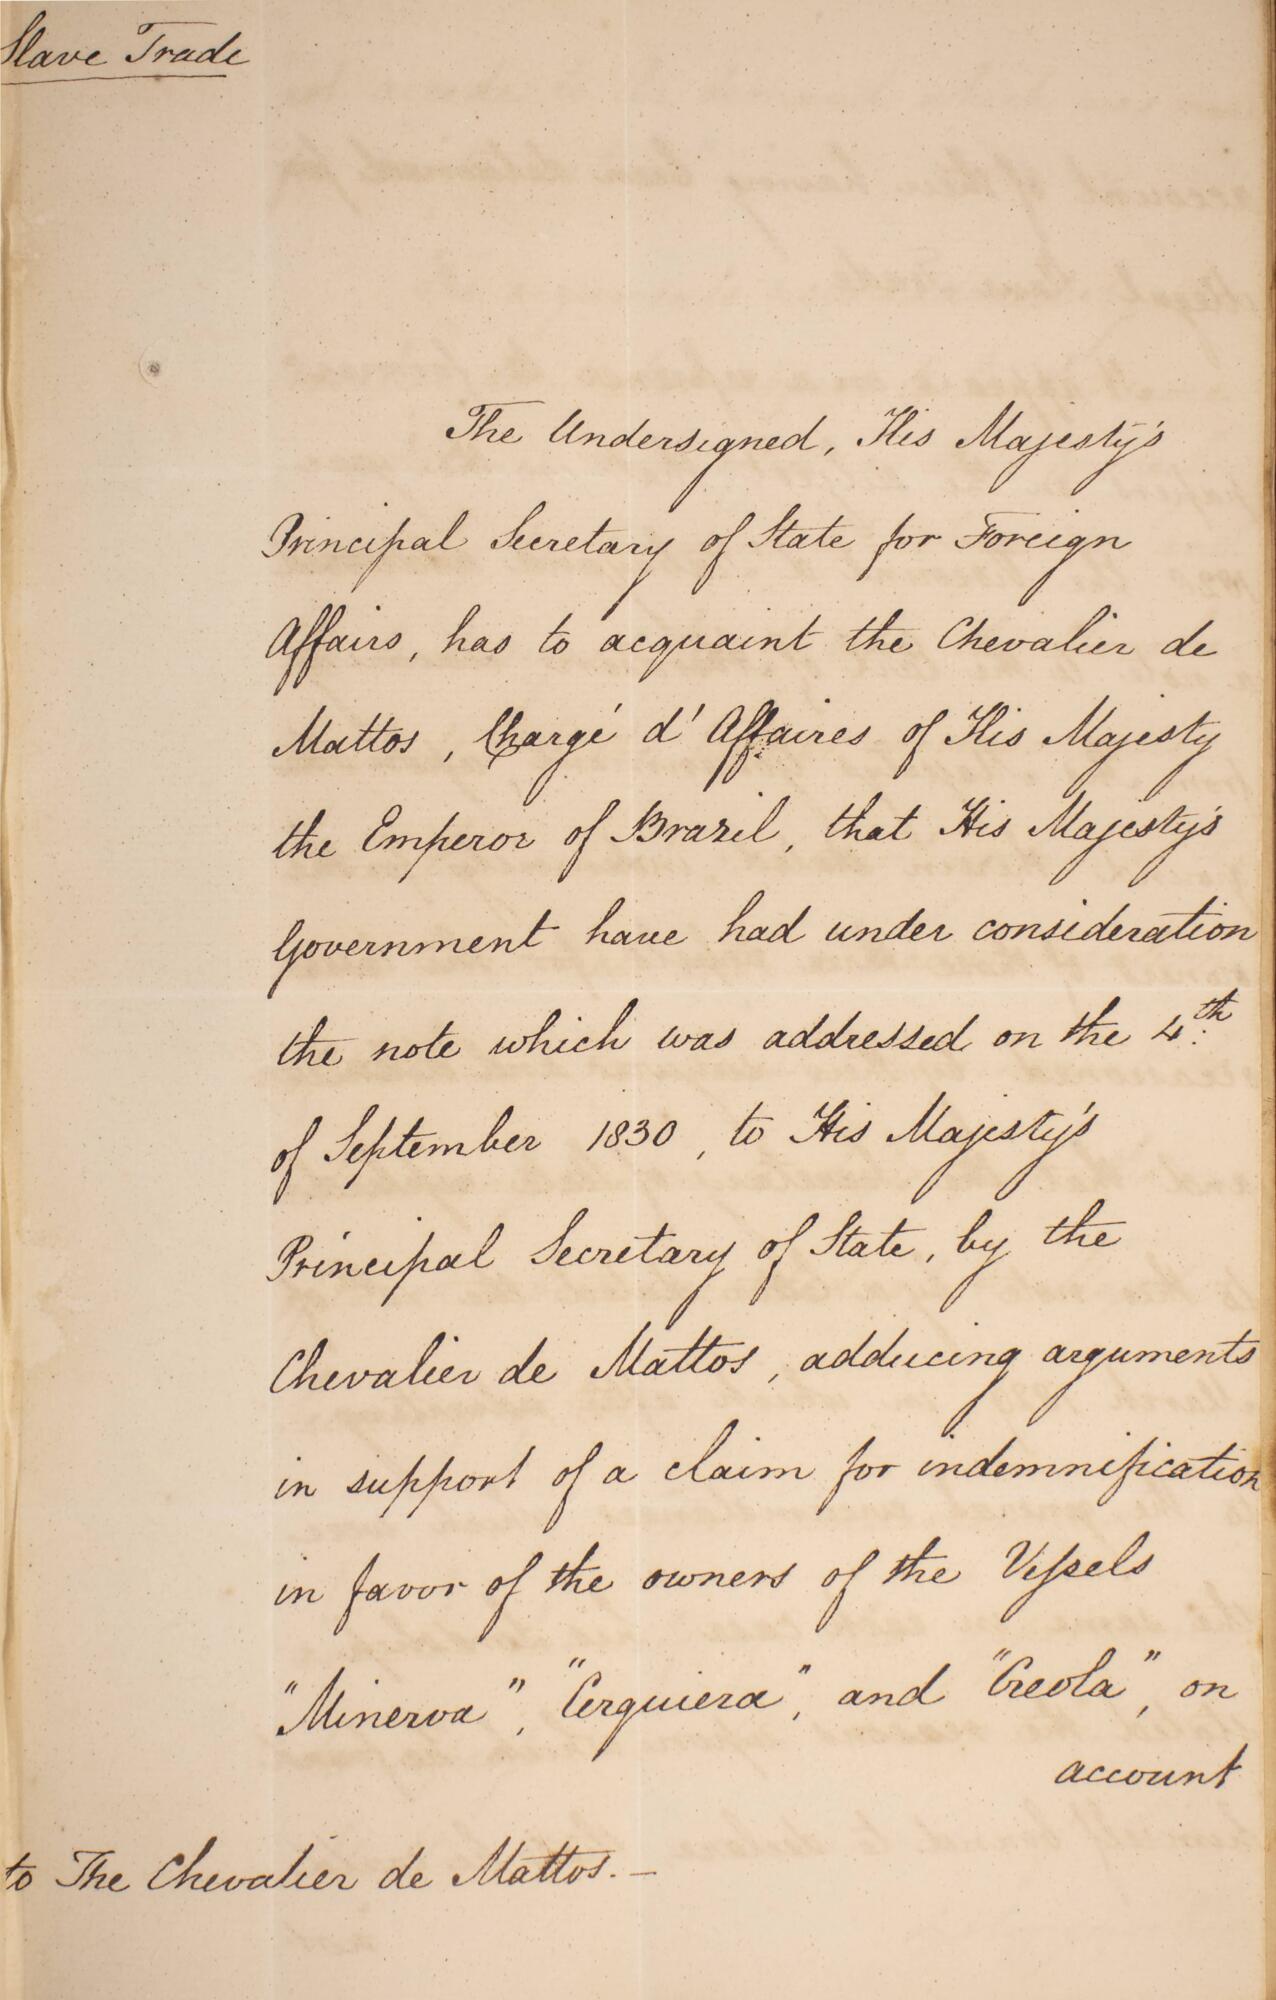 Slave Trade
The Undersigned, His Majesty's
Principal Secretary of State for Foreign
Affairs, has to acquaint the Chevalier de
Mattos, Chargé d'Affaires of His Majesty
the Emperor of Brazil, that His Majesty's
Government have had under consideration
the note which was addressed on the 4th
of September 1830, to His Majesty's
Principal Secretary of State, by the
Chevalier de Mattos, adducing arguments
in support of a claim for indemnification
in favor of the owners of the Veſsels
"Minerva", "Cerquiera", and "Creola", on
account
to The Chevalier de Mattos. —